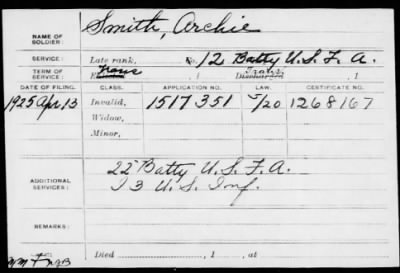 NAME OF SOLDIER: Smith, Archie
SERVICE: Late rank, Co. 12 Batty U.S.F.A.
TERM OF SERVICE: Enlisted , 1 Discharged , 1
DATE OF FILING. CLASS. APPLICATION NO. LAW. CERTIFICATE NO.
1925 Apr. 13 Invalid, 1517351 1268167
Widow,
Minor,
ADDITIONAL SERVICES: 22" Batty U.S.F.A.
13 U.S. Inf.
REMARKS:
Died , 1 , at